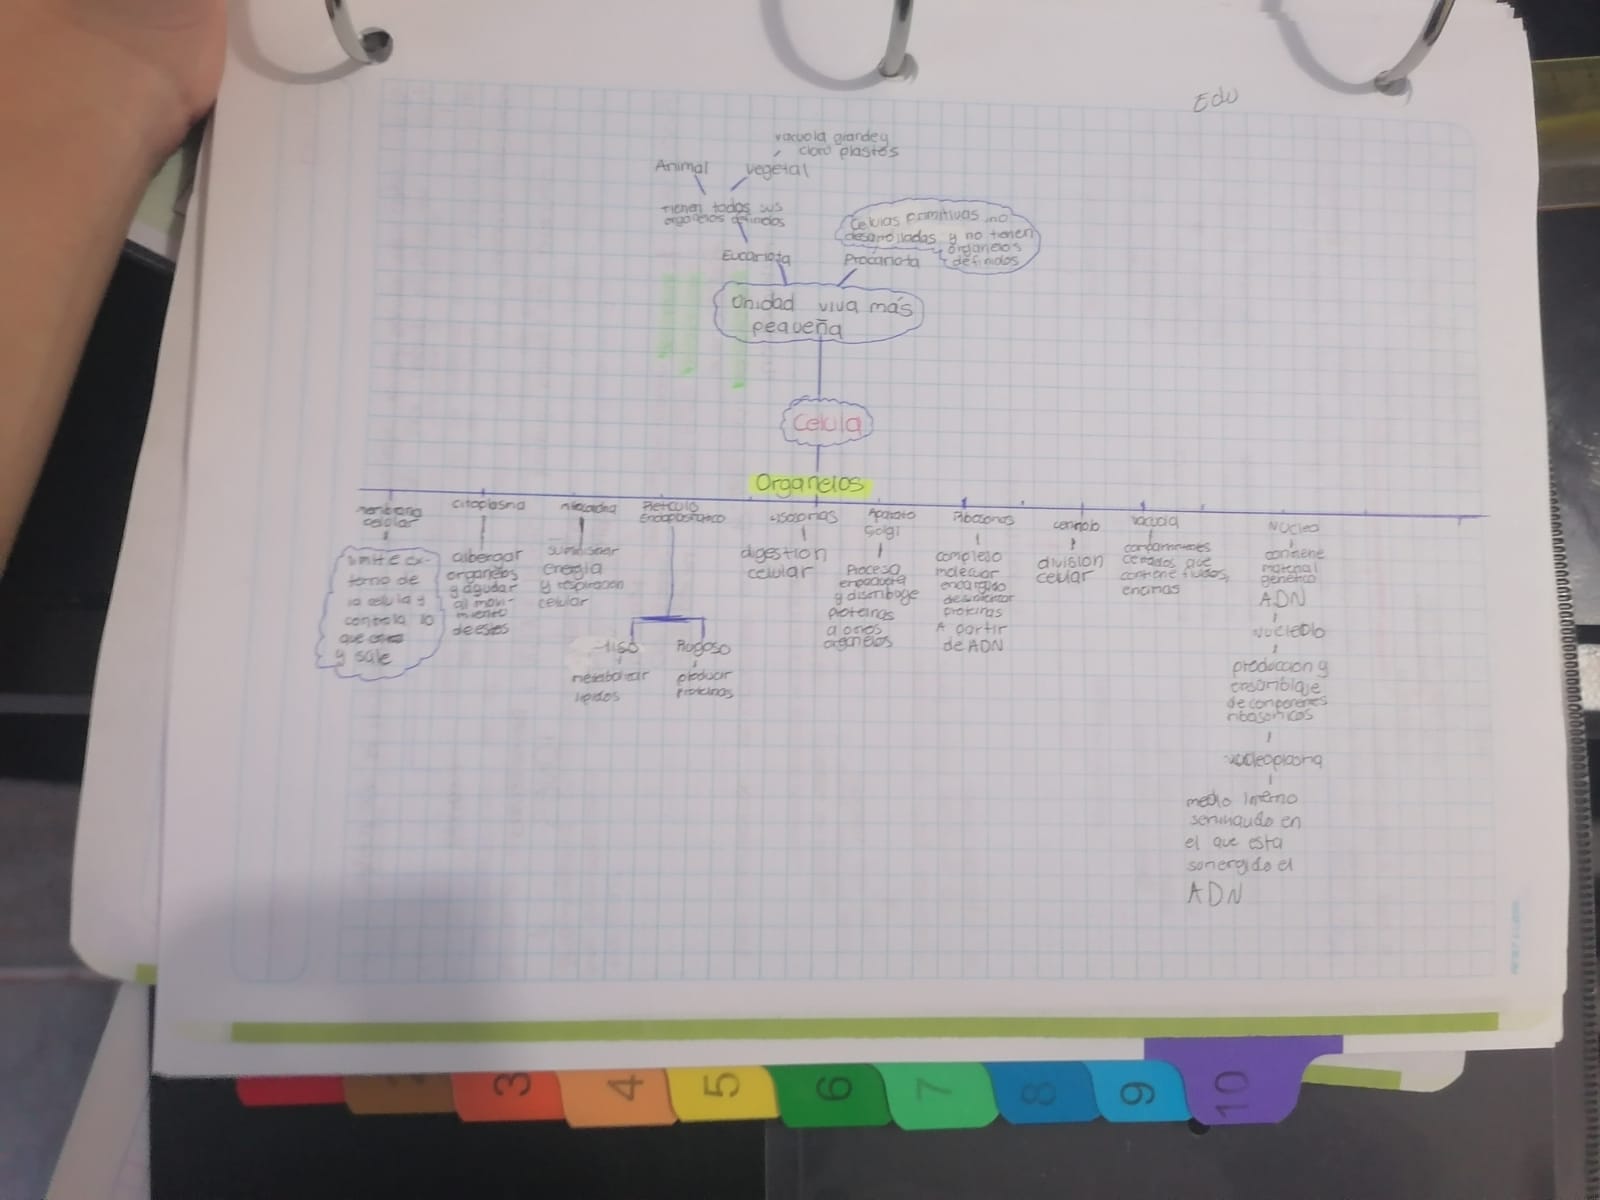 Edu
vacuola grande y
cloro plastos
Animal
vegetal
Tienen todos sus
organelos definidos
Celulas primitivas no
desarrolladas y no tienen
organelos
definidos
Eucariota
Procariota
Unidad viva más
pequeña
Celula
Organelos
membrana
celular
limite ex-
terno de
la celula y
controla lo
que
y sale
citoplasma
albergar
organelos
y agudar
al movi-
miento
de estos
energia
y respiracion
celular
Reticulo
Liso
metabolizar
lipidos
Rugoso
producir
proteinas
Lisosomas
digestion
celular
Aparato
Golgi
Procesa
empaqueta
y distribuye
proteinas
a otros
organelos
Ribosomas
complejo
molecular
encargado
de sintetizar
proteinas
A partir
de ADN
division
celular
vacuola
cerrados que
contiene fluidos,
encimas
Nucleo
contiene
material
genetico
ADN
Nucleolo
produccion y
ensamblaje
de componentes
ribosomicos
nucleoplasma
medio interno
semiliquido en
el que esta
sumergido el
ADN
3
4
5
6
7
8
9
10